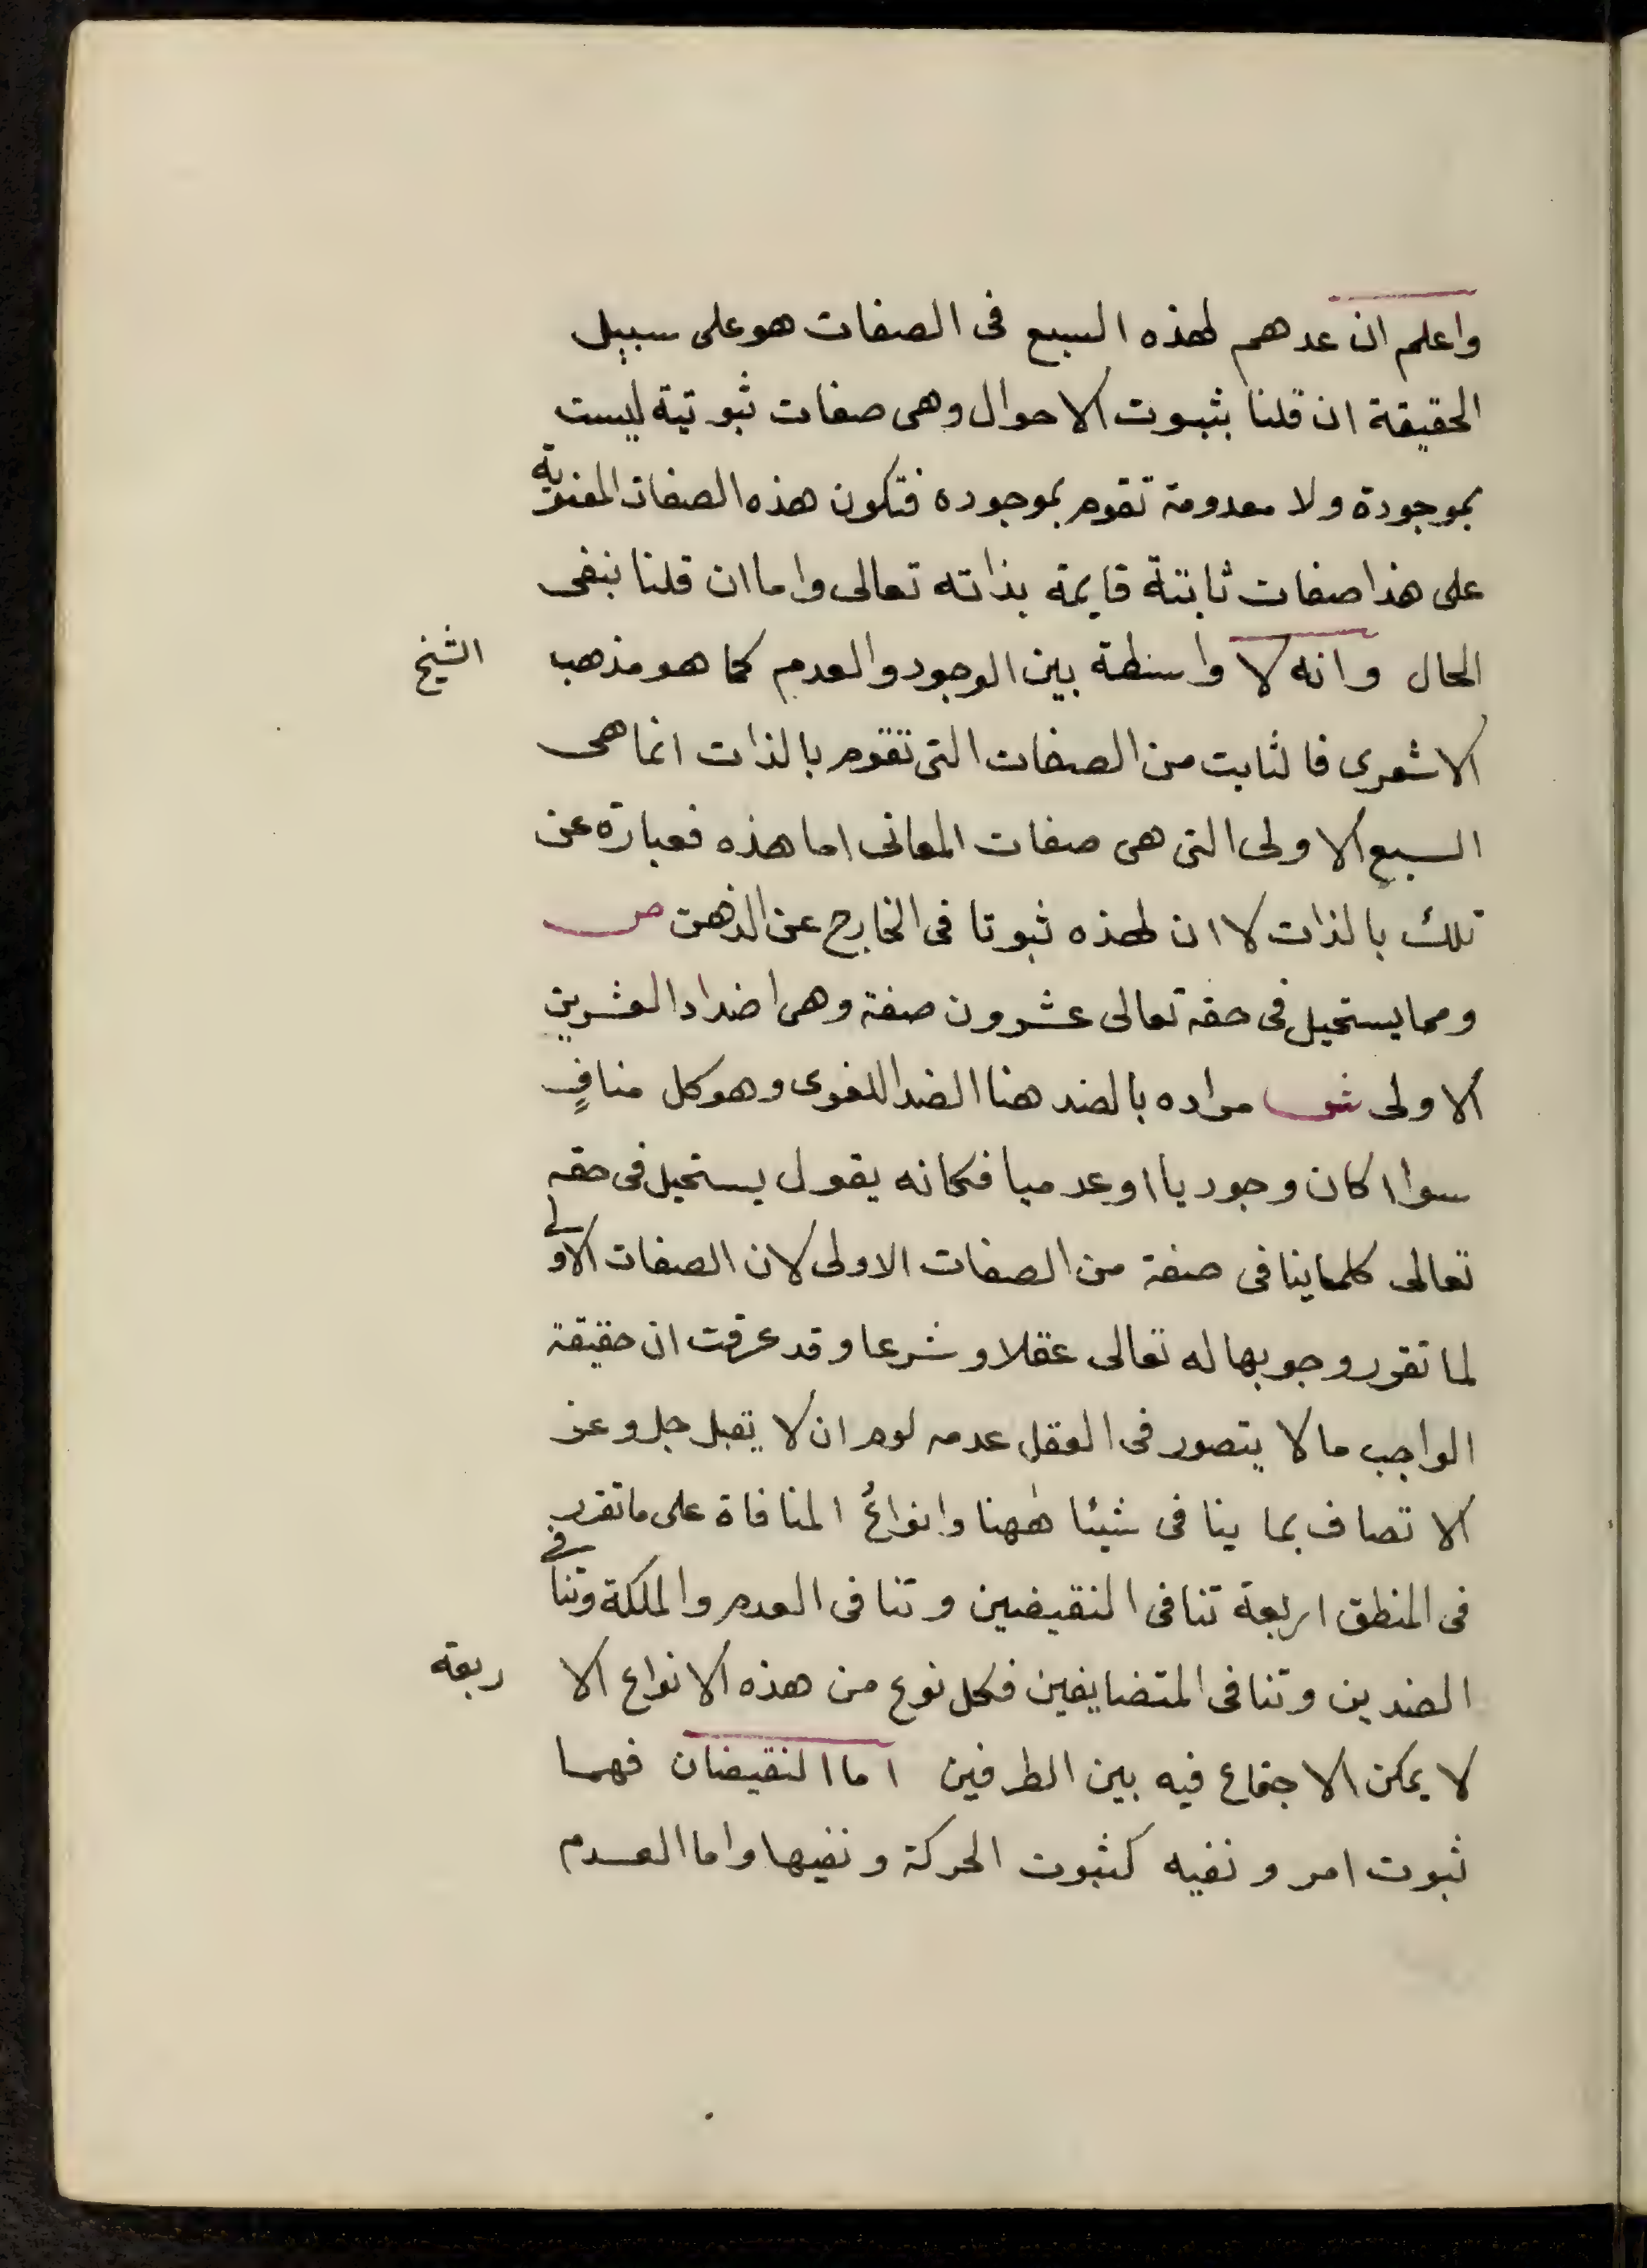 واعلم ان عدهم لهذه السبع فى الصفات هو على سبيل
الحقيقة ان قلنا بثبوت الاحوال وهى صفات ثبوتية ليست
بموجودة ولا معدومة تقوم بموجوده فتكون هذه الصفات المعنوية
على هذا صفات ثابتة قايمة بذاته تعالى واما ان قلنا بنفى
الحال وانه لا واسطة بين الوجود والعدم كما هو مذهب الشيخ
الاشعرى فالثابت من الصفات التى تقوم بالذات انما هى
السبع الاولى التى هى صفات المعانى اما هذه فعبارة عن
تلك بالذات لا ان لهذه ثبوتا فى الخارج عن الذهن ص
ومما يستحيل فى حقه تعالى عشرون صفة وهى اضداد العشرين
الاولى ش مراده بالضد هنا الضد اللغوى وهو كل منافٍ
سوا كان وجوديا او عدميا فكانه يقول يستحيل فى حقه
تعالى كلما ينافى صفة من الصفات الاولى لان الصفات الاولى
لما تقرر وجوبها له تعالى عقلا وشرعا وقد عرفت ان حقيقة
الواجب ما لا يتصور فى العقل عدمه لوم ان لا يقبل جل وعز
الاتصاف بما ينافى شيئا ههنا وانواعُ المنافاة على ما تقرر
فى المنطق اربعة تنافى النقيضين وتنافى العدم والملكة وتنافى
الضدين وتنافى المتضايفين فكل نوع من هذه الانواع الا ربعة
لا يمكن الاجتماع فيه بين الطرفين اما النقيضان فهما
ثبوت امر ونفيه كثبوت الحركة ونفيها واما العدم